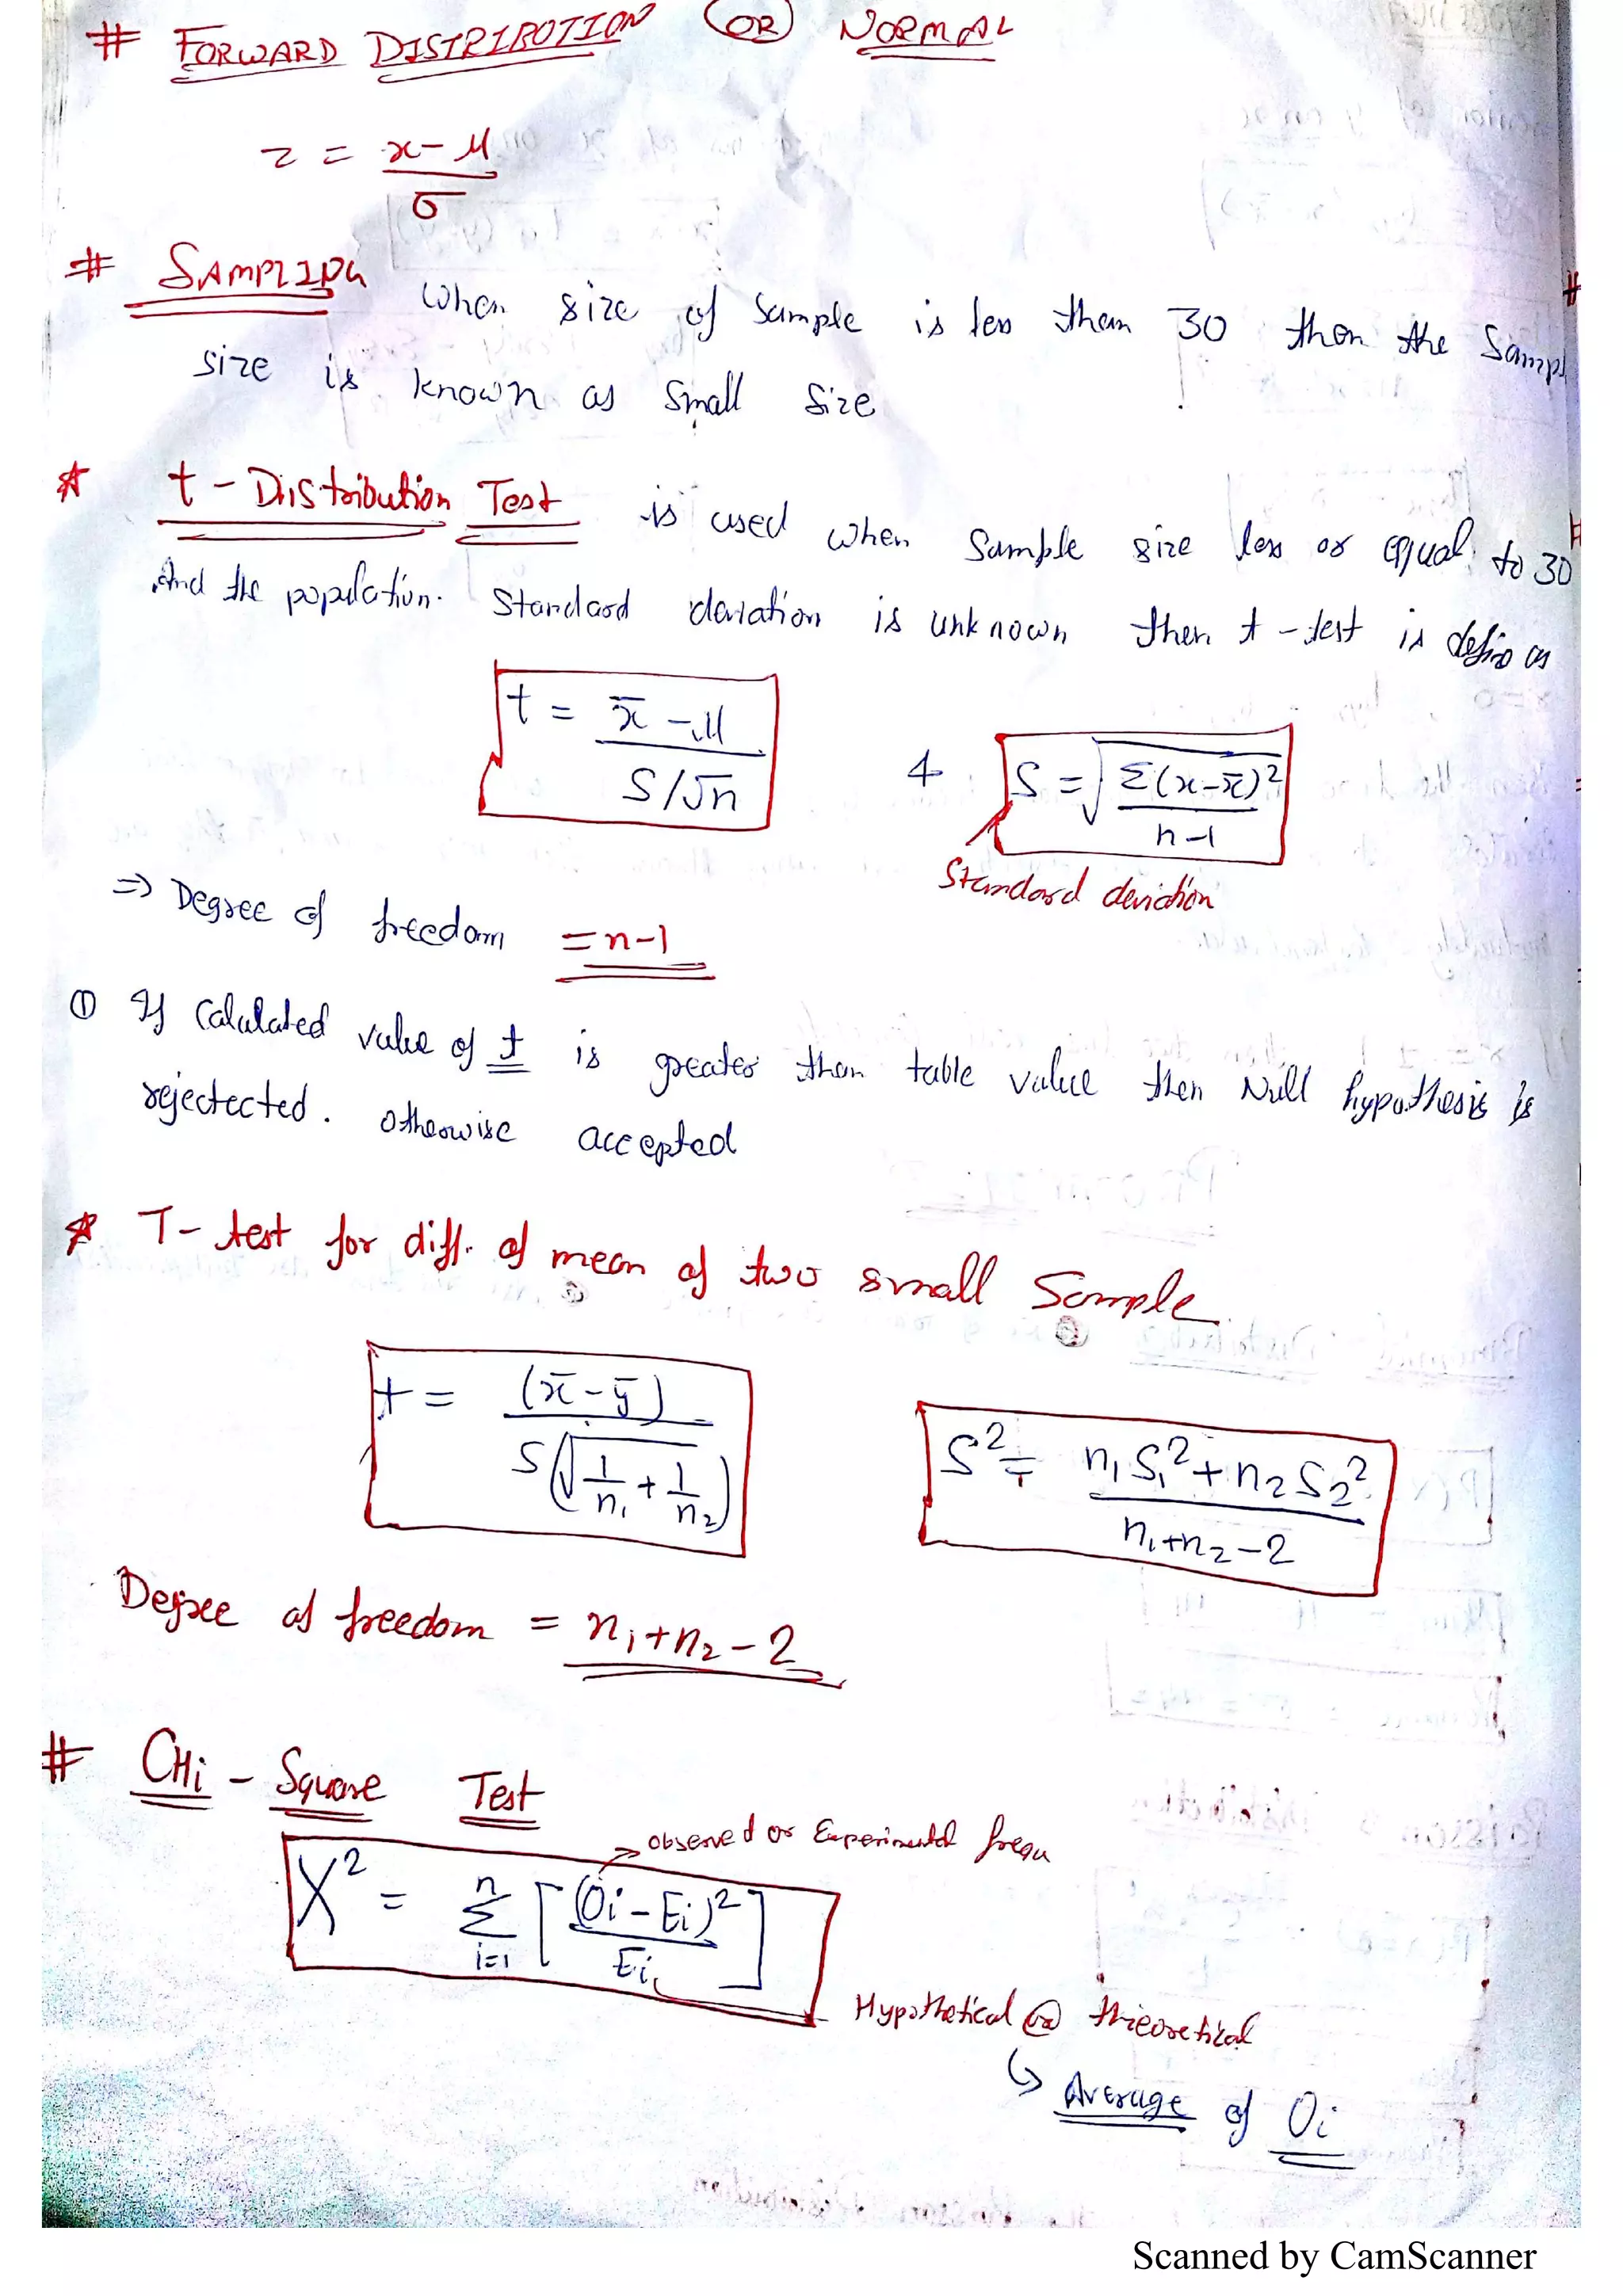 # FORWARD DISTRIBOTION OR NORMAL
z = x - μ / σ
# SAMPLING when size of sample is less than 30 then the Sampl
size is known as small size
* t - Distribution Test is used when sample size less or equal to 30
And the population. Standard deviation is unknown then t - test is define as
t = x̄ - μ / S/√n
& S = √Σ(x-x̄)² / n-1
Standard deviation
=> Degree of freedom = n-1
① If Calulated value of t is greater than table value then Null hypothesis is
rejectected. otherwise accepted
* T- test for diff. of mean of two small Sample
t = (x̄ - ȳ) / S(√1/n₁ + 1/n₂)
S² = n₁S₁² + n₂S₂² / n₁+n₂-2
Degree of freedom = n₁+n₂-2
# CHi - Square Test
observed or Experimental frequ
X² = Σ i=1 n [(Oi - Ei)² / Ei]
Hypothetical or theoretical
↳ Average of Oi
Scanned by CamScanner